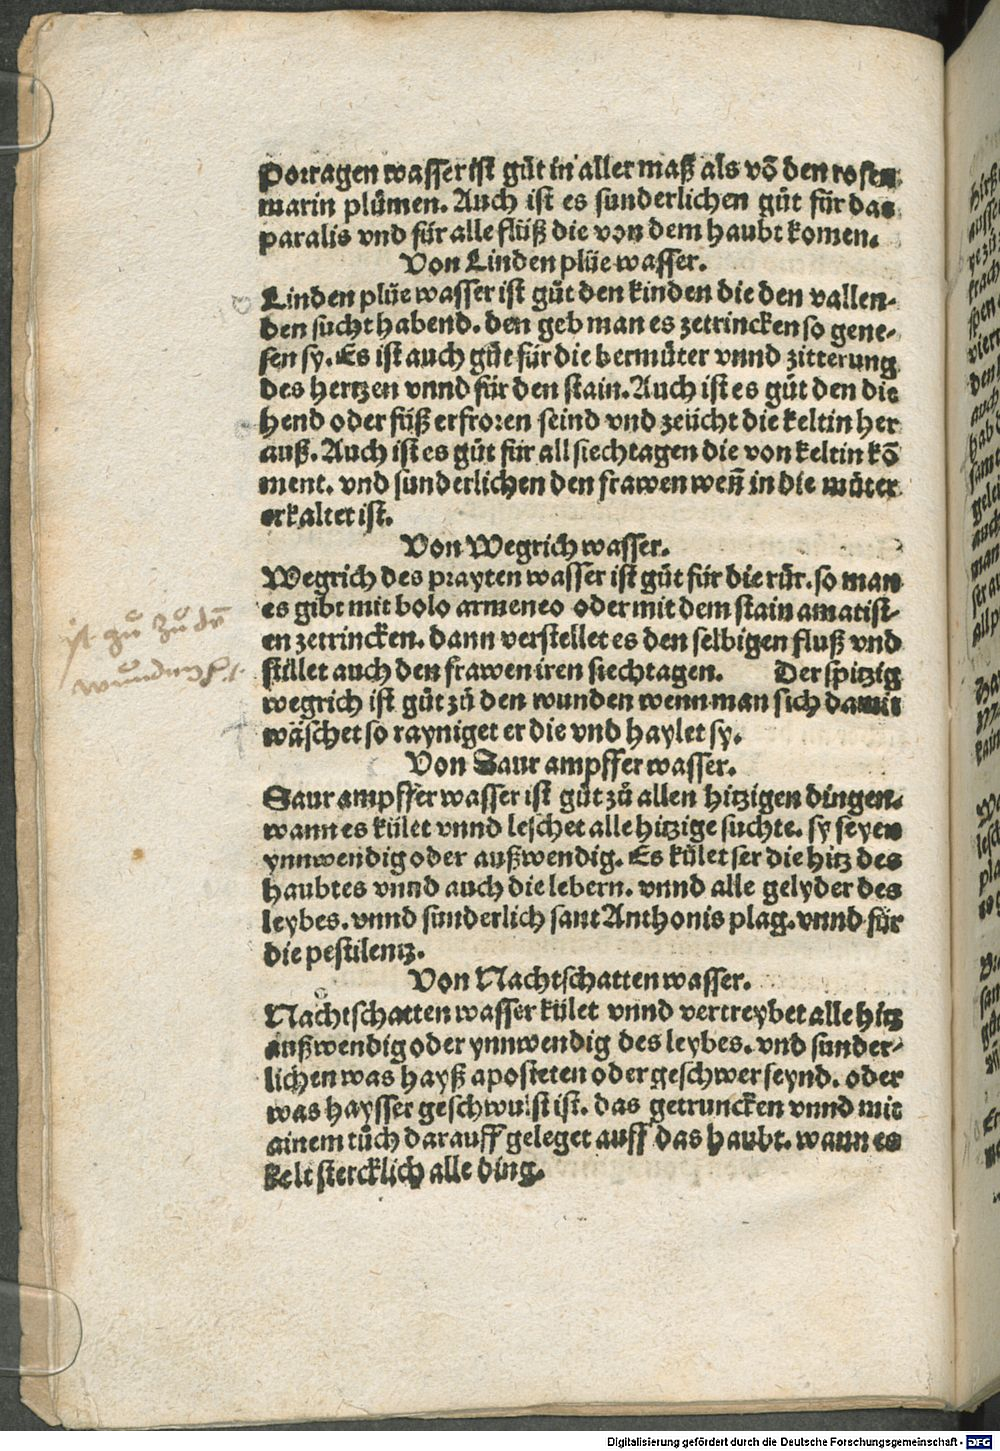 Porragen wasser ist gůt in aller maß als võ den rosen
marin plůmen. Auch ist es sunderlichen gůt für das
paralis vnd für alle flüß die von dem haubt komen.
Von Linden plüe wasser.
Linden plüe wasser ist gůt den kinden die den vallen-
den sucht habend. den geb man es zetrincken so gene-
sen sy. Es ist auch gůt für die bermůter vnnd zitterung
des hertzen vnnd für den stain. Auch ist es gůt den die
hend oder füß erfroren seind vnd zeücht die keltin her
auß. Auch ist es gůt für all siechtagen die von keltin kõ
ment. vnd sunderlichen den frawen weñ in die můter
erkaltet ist.
Von Wegrich wasser.
Wegrich des prayten wasser ist gůt für die růr. so man
es gibt mit bolo armeneo oder mit dem stain amatist-
en zetrincken. dann verstellet es den selbigen fluß vnd
ist gů zů dẽ
stillet auch den frawen iren siechtagen. Der spitzig
wegrich ist gůt zů den wunden wenn man sich damit
wäschet so rayniget er die vnd haylet sy.
Von Saur ampffer wasser.
Saur ampffer wasser ist gůt zů allen hitzigen dingen.
wann es kület vnnd leschet alle hitzige suchte. sy seyen
ynnwendig oder außwendig. Es kület ser die hitz des
haubtes vnnd auch die lebern. vnnd alle gelyder des
leybes. vnnd sunderlich sant Anthonis plag. vnnd für
die pestilentz.
Von Nachtschatten wasser.
Nachtschatten wasser kület vnnd vertreybet alle hitz
außwendig oder ynnwendig des leybes. vnd sunder-
lichen was hayß aposteten oder geschwer seynd. oder
was haysser geschwulst ist. das getruncken vnnd mit
ainem tůch darauff geleget auff das haubt. wann es
kelt stercklich alle ding.
Digitalisierung gefördert durch die Deutsche Forschungsgemeinschaft - DFG